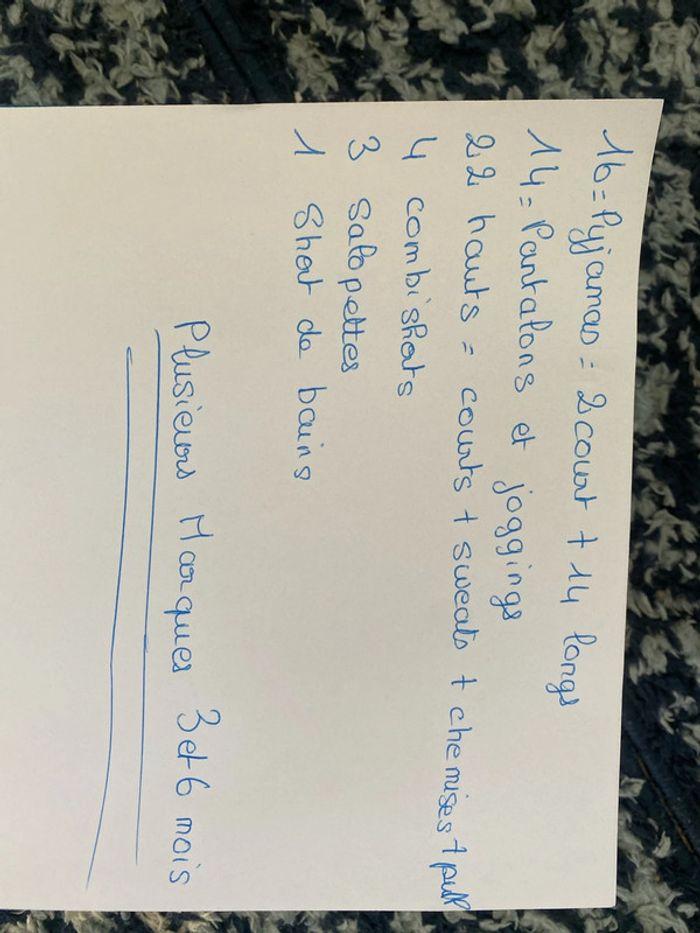 16 = Pyjamas = 2 court + 14 longs
14 = Pantalons et joggings
22 hauts = courts + sweats + chemises + pull
4 combishorts
3 salopettes
1 Short de bains
Plusieurs Marques 3 et 6 mois